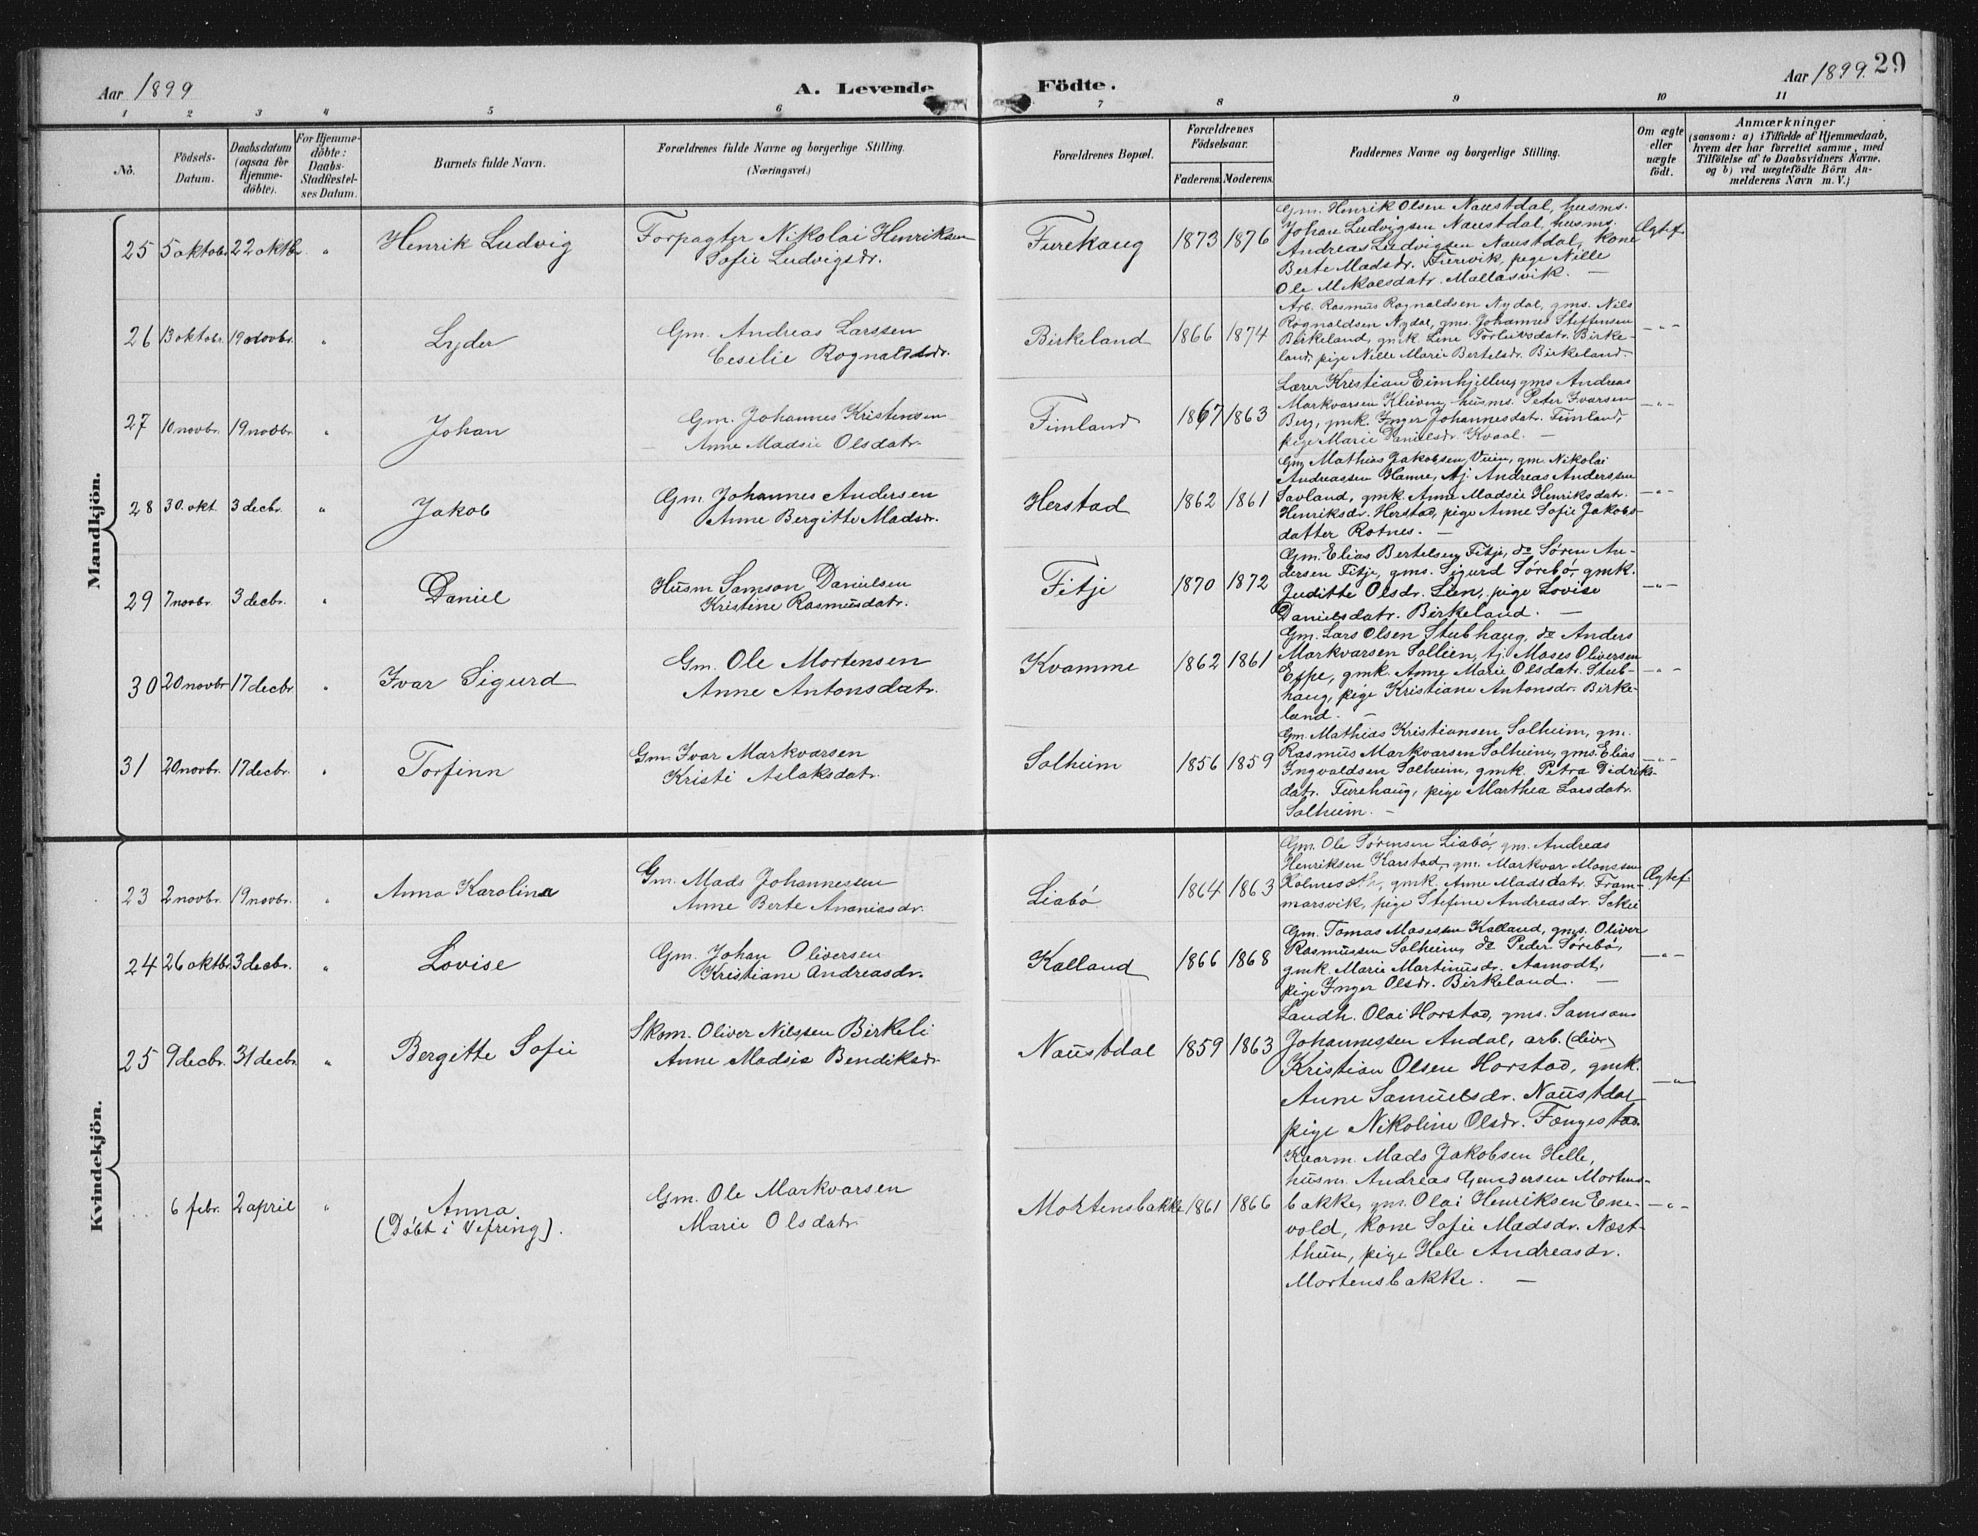 Aar 1899 A. Levende Födte. Aar 1899. 29
1 2 3 4 5 6 7 8 9 10 11
No. Födsels-Datum. Daabsdatum (ogsaa for Hjemme-döbte). For Hjemme-döbte: Daabs-Stadfestel-ses Datum. Barnets fulde Navn. Forældrenes fulde Navne og borgerlige Stilling. (Næringsvei.) Forældrenes Bopæl. Forældrenes Födselsaar. Faderens. Moderens. Faddernes Navne og borgerlige Stilling. Om ægte eller uægte født. Anmærkninger
(saasom: a) i Tilfælde af Hjemmedaab,
hvem der har forrettet samme, med
Tilföielse af to Daabsvidners Navne.
og b) ved uægtefödte Börn An-
melderens Navn m. V.)
Mandkjön.
25 5 oktobr 22 oktbr. " Henrik Ludvig Forpagter Nikolai Henriksen
Sofie Ludvigsdr.
Furehaug 1873 1876 Gm. Henrik Olsen Naustdal, husms.
Johan Ludvigsen Naustdal, husms.
Andreas Ludvigsen Naustdal, kone
Berte Madsdr. Furevik, pige Nille
Ole Mikalsdatr. Mallasvik. —
Ægtef
26 13 oktobr. 19 novbr. " Lyder Gm. Andreas Larssen
Ceselie Rognaldsdr.
Birkeland 1866 1874 Arb. Rasmus Rognaldsen Nydal, gms. Nils
Rognaldsen Nydal, gms. Johannes Steffensen
Birkeland, gmk. Line Torleivsdatr. Birke-
land, pige Nille Marie Bertelsdr. Birkeland.
— " —
27 10 novbr. 19 novbr. " Johan Gm. Johannes Kristensen
Anne Madsie Olsdatr.
Timland 1867 1863 Lærer Kristian Eimhjellen, gms Andreas
Markvarsen Kleiven, husms. Peter Ivarsen
Berg, gmk. Inger Johannesdatr. Timland,
pige Marie Danielsdr. Kvaal. —
— " —
28 30. okt. 3 decbr. " Jakob Gm. Johannes Andersen
Anne Bergitte Madsdr.
Herstad 1862 1861 Gm Mathias Jakobsen Vein, gm. Nikolai
Andreassen Hamre, tj. Andreas Anderssen
Savland, gmk. Anne Madsie Henriksdatr.
Henriksdr. Herstad, pige Anne Sofie Jakobs-
datter Rotnes. —
— " —
29 7 novbr. 3 decbr. " Daniel Husm Samson Danielsen
Kristine Rasmusdatr.
Fitje 1870 1872 Gm. Elias Bertelsen Fitje, do Søren An-
dersen Fitje, gms. Sigurd Sørebø, gmk.
Juditte Olsdr. Lien, pige Lovise
Danielsdatr. Birkeland. —
— " —
30 20 novbr 17 decbr. " Ivar Sigurd Gm. Ole Mortensen
Anne Antonsdatr.
Kvamme 1862 1861 Gm. Lars Olsen Stubhaug, do Anders
Markvarsen Sollien, tj. Moses Oliversen
Espe, gmk Anne Marie Olsdatr. Stub-
haug, pige Kristiane Antonsdr. Birke-
land. —
— " —
31 20 novbr. 17 decbr. " Torfinn Gm. Ivar Markvarsen
Kristi Aslaksdatr.
Solheim 1856 1859 Gm. Mathias Kristiansen Solheim, gm.
Rasmus Markvarsen Solheim, gms. Elias
Ingvaldsen Solheim, gmk. Petra Didriks-
datr. Furehaug, pige Marthea Larsdatr.
Solheim. —
— " —
Kvindekjön.
23 2 novbr. 19 novbr. " Anna Karolina Gm. Mads Johannessen
Anne Berte Ananiasdr.
Liabø 1864 1863 Gm. Ole Sørensen Liabø, gm. Andreas
Henriksen Karstad, gm. Markvar Monssen
gmk. Anne Madsdatr. Fram-
marsvik, pige Stefine Andreasdr.
Ægtef
24 26 oktbr. 3 decbr. " Lovise Gm. Johan Oliversen
Kristiane Andreasdr.
Kalland 1866 1868 Gm. Tomas Mosessen Kalland, gms. Oliver
Rasmussen Solheim, do Peder Sørebø,
gmk. Marie Martinusdr. Aamodt,
pige Inger Olsdr. Birkeland. —
— " —
25 9 decbr. 31 decbr. " Bergitte Sofie Skom. Oliver Nilssen Birkeli
Anne Madsie Bendiksdr.
Naustdal 1859 1863 Landh. Olai Horstad, gms. Samson
Johannessen Andal, arb.
Kristian Olsen Horstad, gmk.
Anne Samuelsdr. Naustdal
pige Nikoline Olsdr. Fængestad.
— " —
6 febr. 2 april " Anna
(Döbt i Vefring).
Gm. Ole Markvarsen
Marie Olsdatr
Mortensbakke 1861 1866 Kaarm. Mads Jakobsen Helle,
husm. Andreas Gundersen Mortens-
bakke, gm. Olai Henriksen Ene-
vold, kone Sofie Madsdr. Næst-
thun, pige Hele Andreasdr.
Mortensbakke. —
— " —